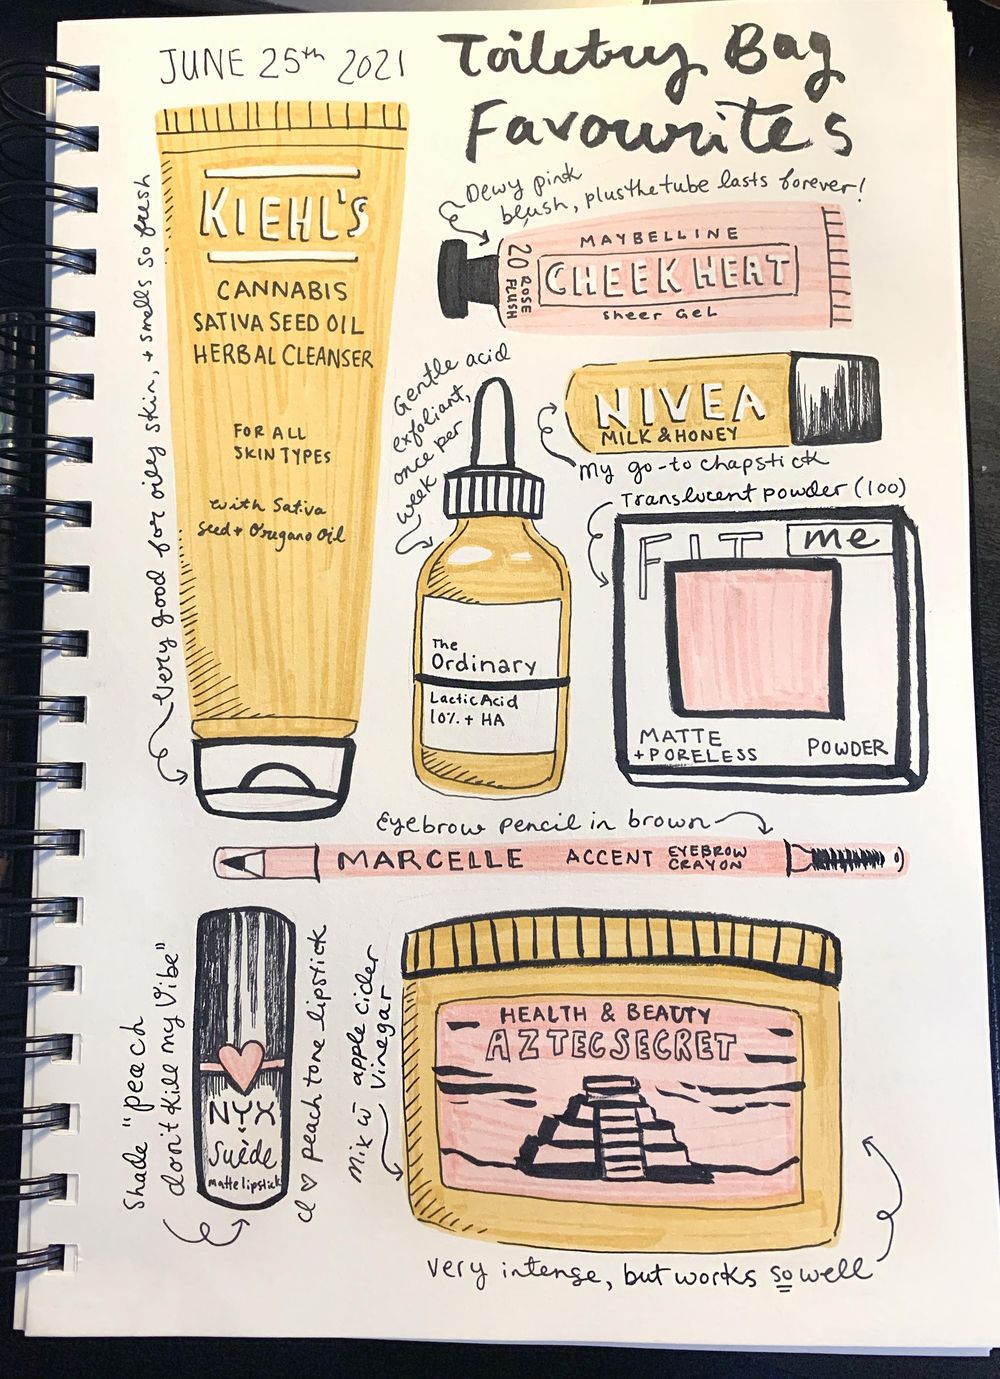 JUNE 25th 2021
Toiletry Bag
Favourites
KIEHL'S
CANNABIS
SATIVA SEED OIL
HERBAL CLEANSER
FOR ALL
SKIN TYPES
with Sativa
Seed + Oregano Oil
Very good for oily skin, + smells so fresh
Dewy pink
blush, plus the tube lasts forever!
MAYBELLINE
CHEEK HEAT
Sheer GeL
20 ROSE
FLUSH
Gentle acid
exfoliant,
once per
week
The
Ordinary
Lactic Acid
10% + HA
NIVEA
MILK & HONEY
my go-to chapstick
Translucent powder (100)
FIT me
MATTE
+ PORELESS
POWDER
Eyebrow pencil in brown
MARCELLE ACCENT EYEBROW
CRAYON
Shade "peach
don't kill my vibe"
NYX
Suède
matte lipstick
I ♡ peach tone lipstick
Mix w apple cider
Vinegar
HEALTH & BEAUTY
AZTEC SECRET
very intense, but works so well